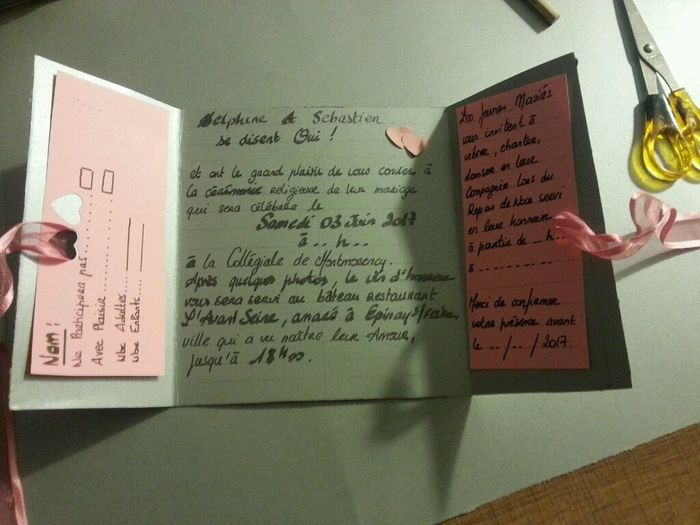 Nom :
Ne Participera pas
Avec Plaisir
Nbre Adultes
Nbre Enfants
Delphine & Sébastien
se disent Oui !
et ont le grand plaisir de vous convier à
la cérémonie religieuse de leur mariage
qui sera célébrée le
Samedi 03 Juin 2017
à .. h ..
à la Collégiale de Montmorency.
Après quelques photos, le vin d'honneur
vous sera servi au bateau restaurant
L'Avant Seine, amarré à Épinay s/ Seine,
ville qui a vu naître leur Amour,
jusqu'à 18h00.
Les Jeunes Mariés
vous invitent à
vibrer, chanter,
danser en leur
Compagnie lors du
Repas de Noce servi
en leur honneur
à partir de __ h __
à - - - - - - - - -
Merci de confirmer
votre présence avant
le __/__/ 2017.